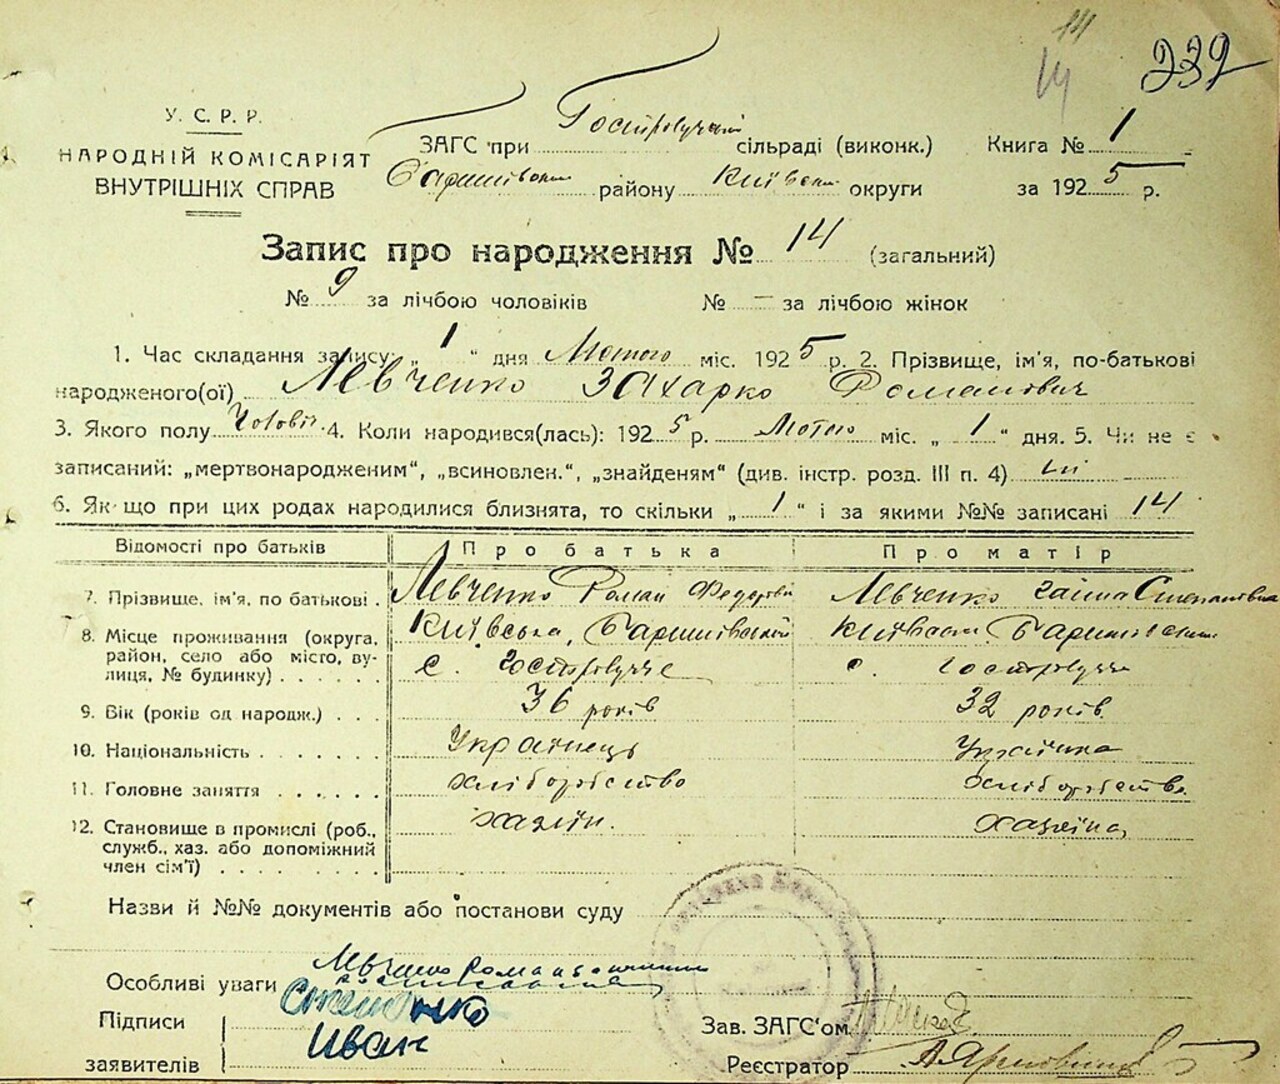 14
14
232
У. С. Р. Р.
НАРОДНІЙ КОМІСАРІЯТ
ВНУТРІШНІХ СПРАВ
ЗАГС при Гостролучській сільраді (виконк.) Книга № 1
Баришівськ району Київськ округи за 1925 р.
Запис про народження № 14 (загальний)
№ 9 за лічбою чоловіків № – за лічбою жінок
1. Час складання запису: „ 1 “ дня Лютого міс. 1925 р. 2. Прізвище, ім'я, по-батькові
народженого(ої) Левченко Захарко Романович
3. Якого полу Чоловіч. 4. Коли народився(лась): 1925 р. Лютого міс. „ 1 “ дня. 5. Чи не є
записаний: „мертвонародженим“, „всиновлен.“, „знайденям“ (див. інстр. розд. III п. 4) ні
6. Як що при цих родах народилися близнята, то скільки „ 1 “ і за якими №№ записані 14
Відомості про батьків Про батька Про матір
7. Прізвище, ім'я, по батькові . Левченко Роман Федорові Левченко Степанівна
8. Місце проживання (округа, Київська, Баришівський Київськ Баришівськ
район, село або місто, ву- с. Гостролуччє с. Гостролуччє
лиця, № будинку) . . . . . .
9. Вік (років од народж.) . . . 36 років 32 років
10. Національність . . . . . Українець Українка
11. Головне заняття . . . . . . хліборобство хліборобство
12. Становище в промислі (роб., хазяїн. хазяїна
служб., хаз. або допоміжний
член сім'ї) . . . . . . . .
Назви й №№ документів або постанови суду
Особливі уваги Левченко Роман
Підписи Степанко
Зав. ЗАГС'ом
заявителів Иван
Реєстратор